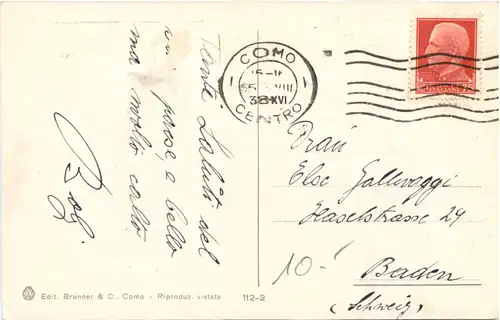 Tanti Saluti del
passe, e bello
ma molto caldo
COMO
CENTRO
38 XVI
ITALIANE
Frau
Else Gallivaggi
Haselstrasse 29
Baden
(Schweiz)
10.-
Edit. Brunner & C., Como - Riproduz. vietata 112-2